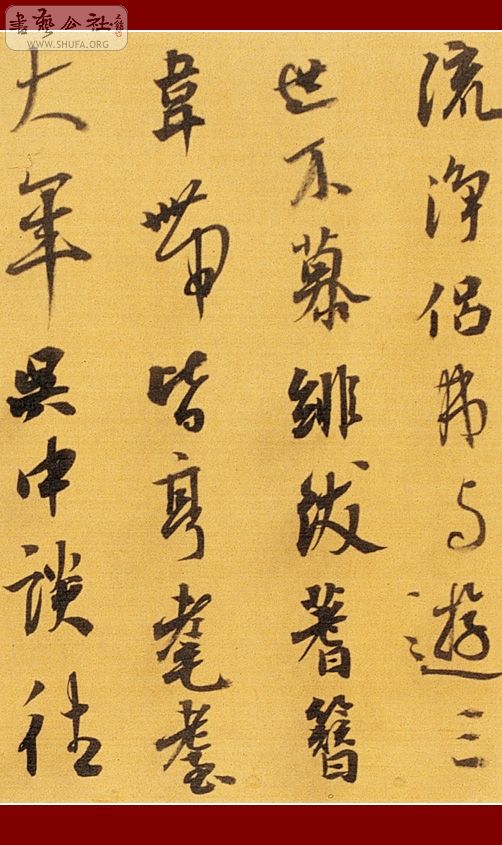 書藝公社
WWW.SHUFA.ORG
流淨侶弗与遊三
世不慕緋紱蓍簪
韋帶皆享耄耋
大年吳中談往